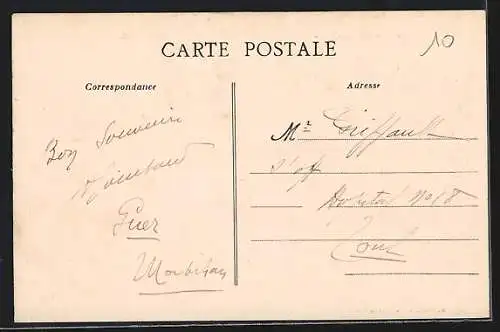 CARTE POSTALE
10
Correspondance
Bon Souvenir
Guer
Morbihan
Adresse
Mr Griffault
Hôpital No 18
Toul